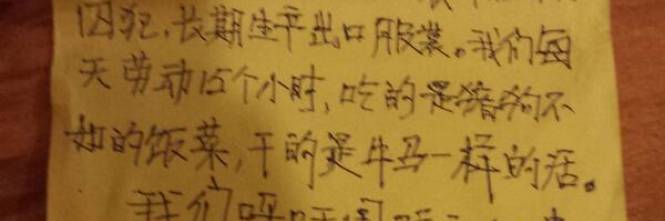 囚犯,长期生产出口服装。我们每
天劳动15个小时,吃的是猪狗不
如的饭菜,干的是牛马一样的活。
我们呼吁国